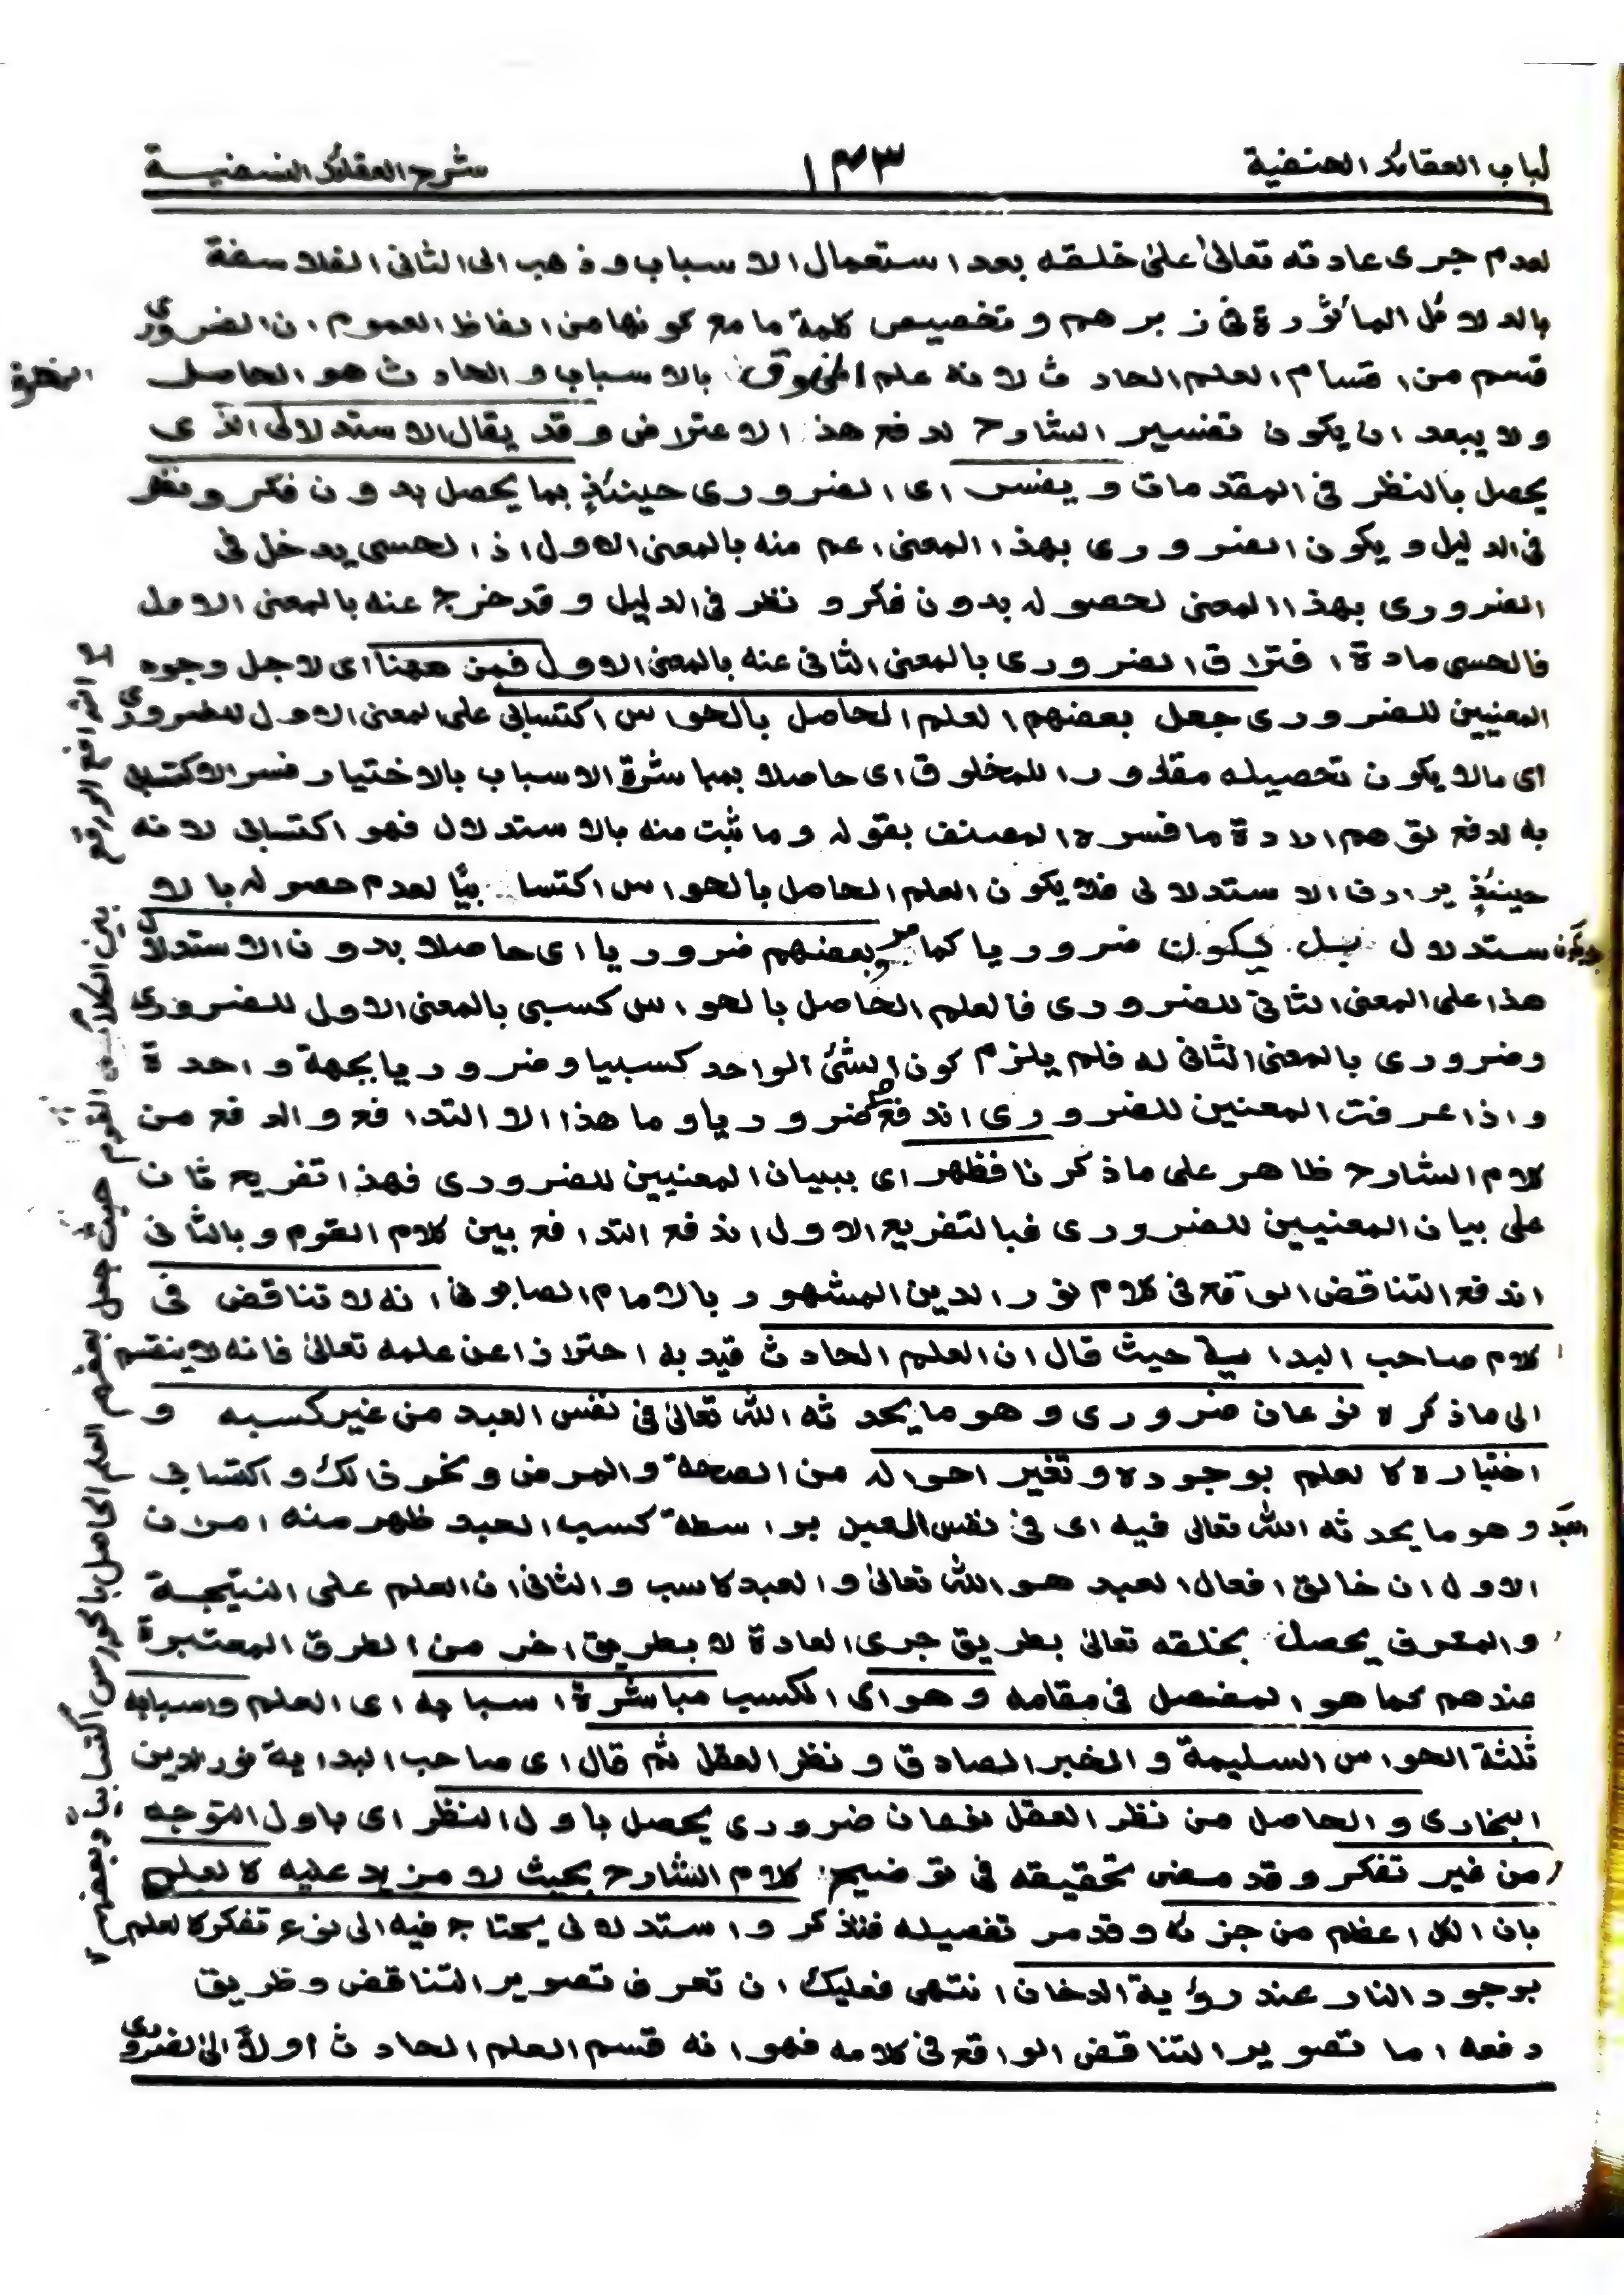 لباب العقائد الحنفية ١٤٣ شرح العقائد النسفية
لعدم جرى عادته تعالىٰ علىٰ خلقه بعد استعمال الاسباب وذهب الى الثانى الفلاسفة
بالدلائل المأثورة فى زبرهم وتخصيص كلمة ما مع كونها من الفاظ العموم ان الضرورى
قسم من اقسام العلم الحادث لانه علم المخلوق بالاسباب والحادث هو الحاصل
ولا يبعد ان يكون تفسير الشارح لدفع هذا الاعتراض وقد يقال الاستدلالى الذى
يحصل بالنظر فى المقدمات ويفسر اى الضرورى حينئذٍ بما يحصل بدون فكر ونظر
فى الدليل ويكون الضرورى بهذا المعنى اعم منه بالمعنى الاول اذ الحسى يدخل فى
الضرورى بهذا المعنى لحصوله بدون فكر و نظر فى الدليل وقد خرج عنه بالمعنى الاول
فالحسى مادة افتراق الضرورى بالمعنى الثانى عنه بالمعنى الاول فمن ههنا اى لاجل وجوه
المعنيين للضرورى جعل بعضهم العلم الحاصل بالحواس اكتسابى على المعنى الاول للضرورى
اى مالا يكون تحصيله مقدورا للمخلوق اى حاصلا بمباشرة الاسباب بالاختيار فسر الاكتسابى
به لدفع توهم الادة ما فسره المصنف بقوله وما ثبت منه بالاستدلال فهو اكتسابى لانه
حينئذٍ يرادف الاستدلالى فلا يكون العلم الحاصل بالحواس اكتسابيًا لعدم حصوله بالا
ستدلال بل يكون ضروريا كما مر وبعضهم ضروريا اى حاصلا بدون الاستدلال
هذا على المعنى الثانى للضرورى فالعلم الحاصل بالحواس كسبى بالمعنى الاول للضرورى
وضرورى بالمعنى الثانى له فلم يلزم كون الشئ الواحد كسبيا وضروريا بجهة واحدة
واذا عرفت المعنين للضرورى اندفع ضروريا وما هذا الا التدافع والدفع من
كلام الشارح ظاهر على ما ذكرنا فظهر اى ببيان المعنيين للضرورى فهذا تفريع ثان
على بيان المعنيين للضرورى فبالتفريع الاول اندفع التدافع بين كلام القوم وبالثانى
اندفع التناقض الواقع فى كلام نور الدين المشهور بالامام الصابونى انه لا تناقض فى
كلام صاحب البداية حيث قال ان العلم الحادث قيد به احترازا عن علمه تعالىٰ فانه لا ينقسم
الى ما ذكره نوعان ضرورى وهو ما يحدثه الله تعالىٰ فى نفس العبد من غير كسبه و
اختياره كالعلم بوجوده وتغير احواله من الصحة والمرض ونحو ذالك واكتسابى
وهو ما يحدثه الله تعالى فيه اى فى نفس العبد بواسطة كسب العبد ظهر منه امران
الاول ان خالق افعال العبد هو الله تعالىٰ والعبد كاسب والثانى ان العلم على النتيجة
والمعرف يحصل بخلقه تعالىٰ بطريق جرى العادة لا بطريق اخر من الطرق المعتبرة
عندهم كما هو المفصل فى مقامه وهو اى الكسب مباشرة اسبابه اى العلم واسبابه
ثلثة الحواس السليمة والخبر الصادق ونظر العقل ثم قال اى صاحب البداية نور الدين
البخارى والحاصل من نظر العقل نوعان ضرورى يحصل باول النظر اى باول التوجه
من غير تفكر وقد مضى تحقيقه فى توضيح كلام الشارح بحيث لا مزيد عليه كالعلم
بان الكل اعظم من جزئه وقد مر تفصيله فتذكر واستدلالى يحتاج فيه الى نوع تفكر كالعلم
بوجود النار عند رؤية الدخان انتهى فعليك ان تعرف تصوير التناقض وطريق
دفعه اما تصوير التناقض الواقع فى كلامه فهو انه قسم العلم الحادث اولًا الى الضرورى
بين الكلام القوم حيث جعل بعضهم العلم الحاصل بالحواس اكتسابيًا وبعضهم